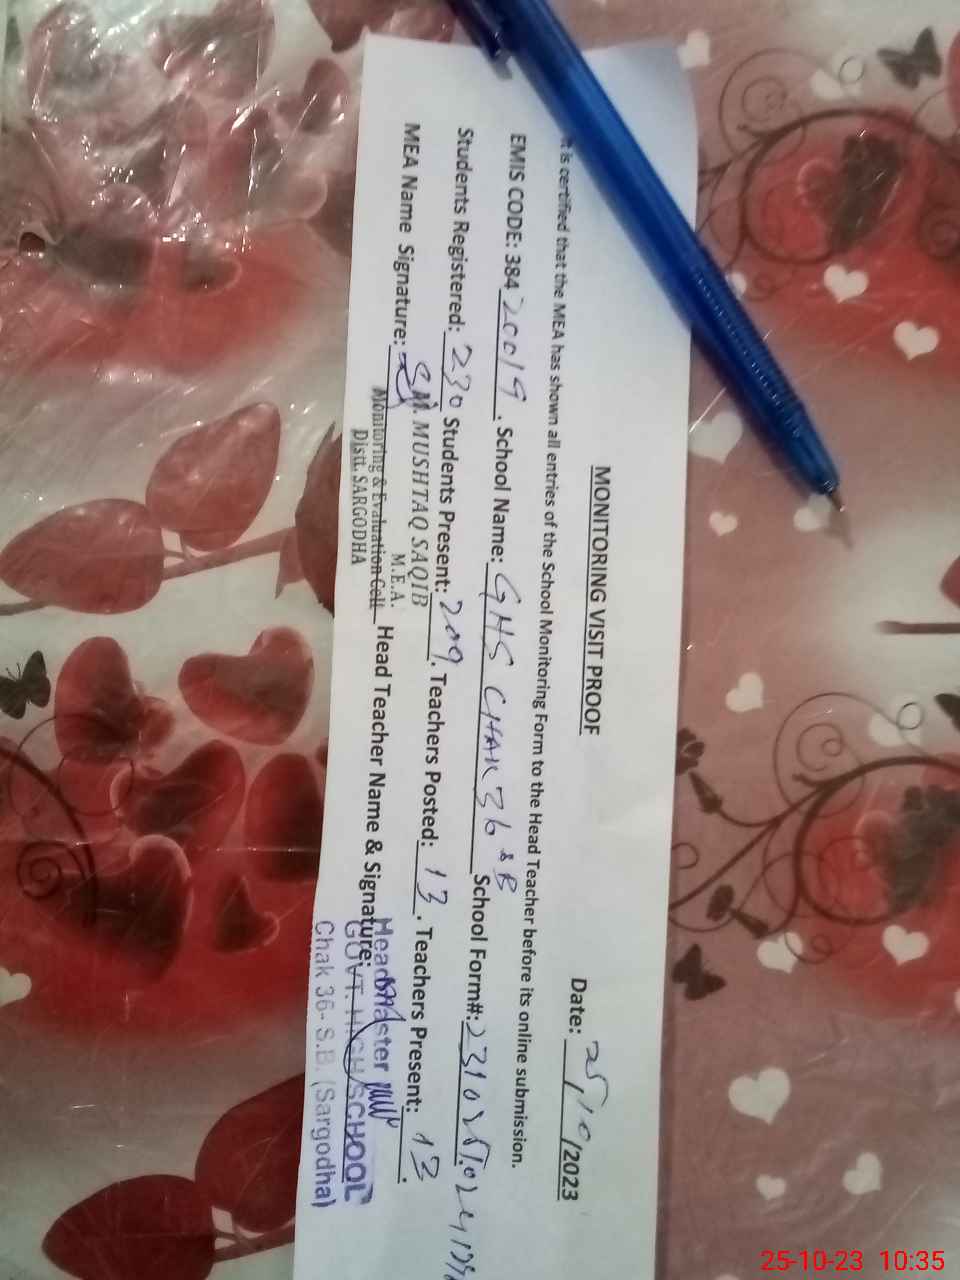 MONITORING VISIT PROOF
Date: 25/10/2023
It is certified that the MEA has shown all entries of the School Monitoring Form to the Head Teacher before its online submission.
EMIS CODE: 38420019. School Name: GHS CHAK 36 SB School Form#:
Students Registered: 230 Students Present: 209. Teachers Posted: 13. Teachers Present: 13.
MEA Name Signature: S.M. MUSHTAQ SAQIB
M.E.A.
Monitoring & Evaluation Cell
Distt. SARGODHA
Head Teacher Name & Signature:
Headmaster
GOVT. HIGH SCHOOL
Chak 36-S.B. (Sargodha)
25-10-23 10:35